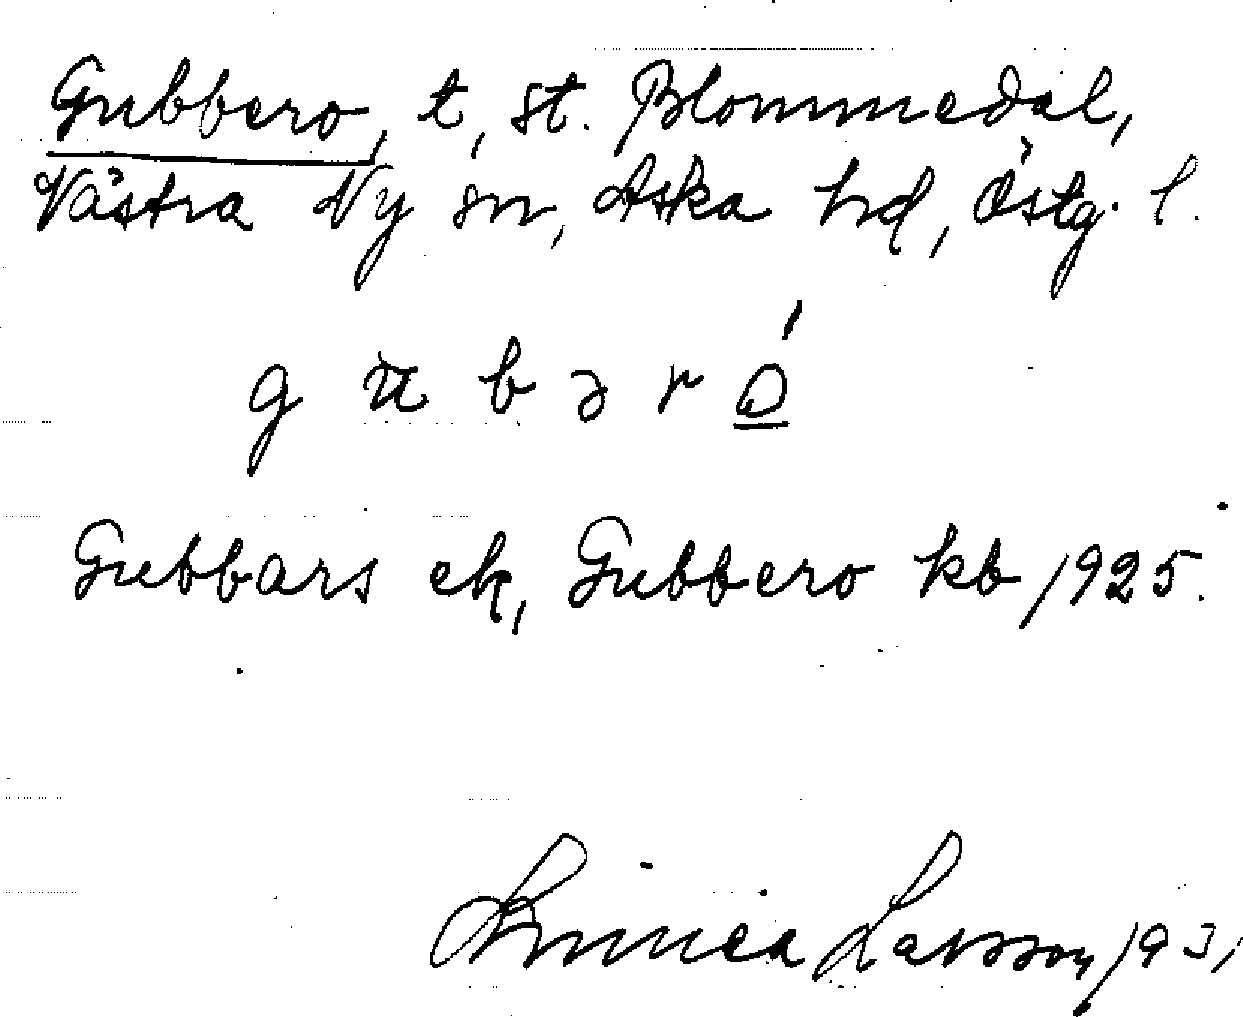 Gubbero, t, st. Blommedal,
Västra Ny sn, Aska hd, Östg. l.
g u b ə r ó
Gubbars ek, Gubbero kb 1925.
Linnea Larsson 1931